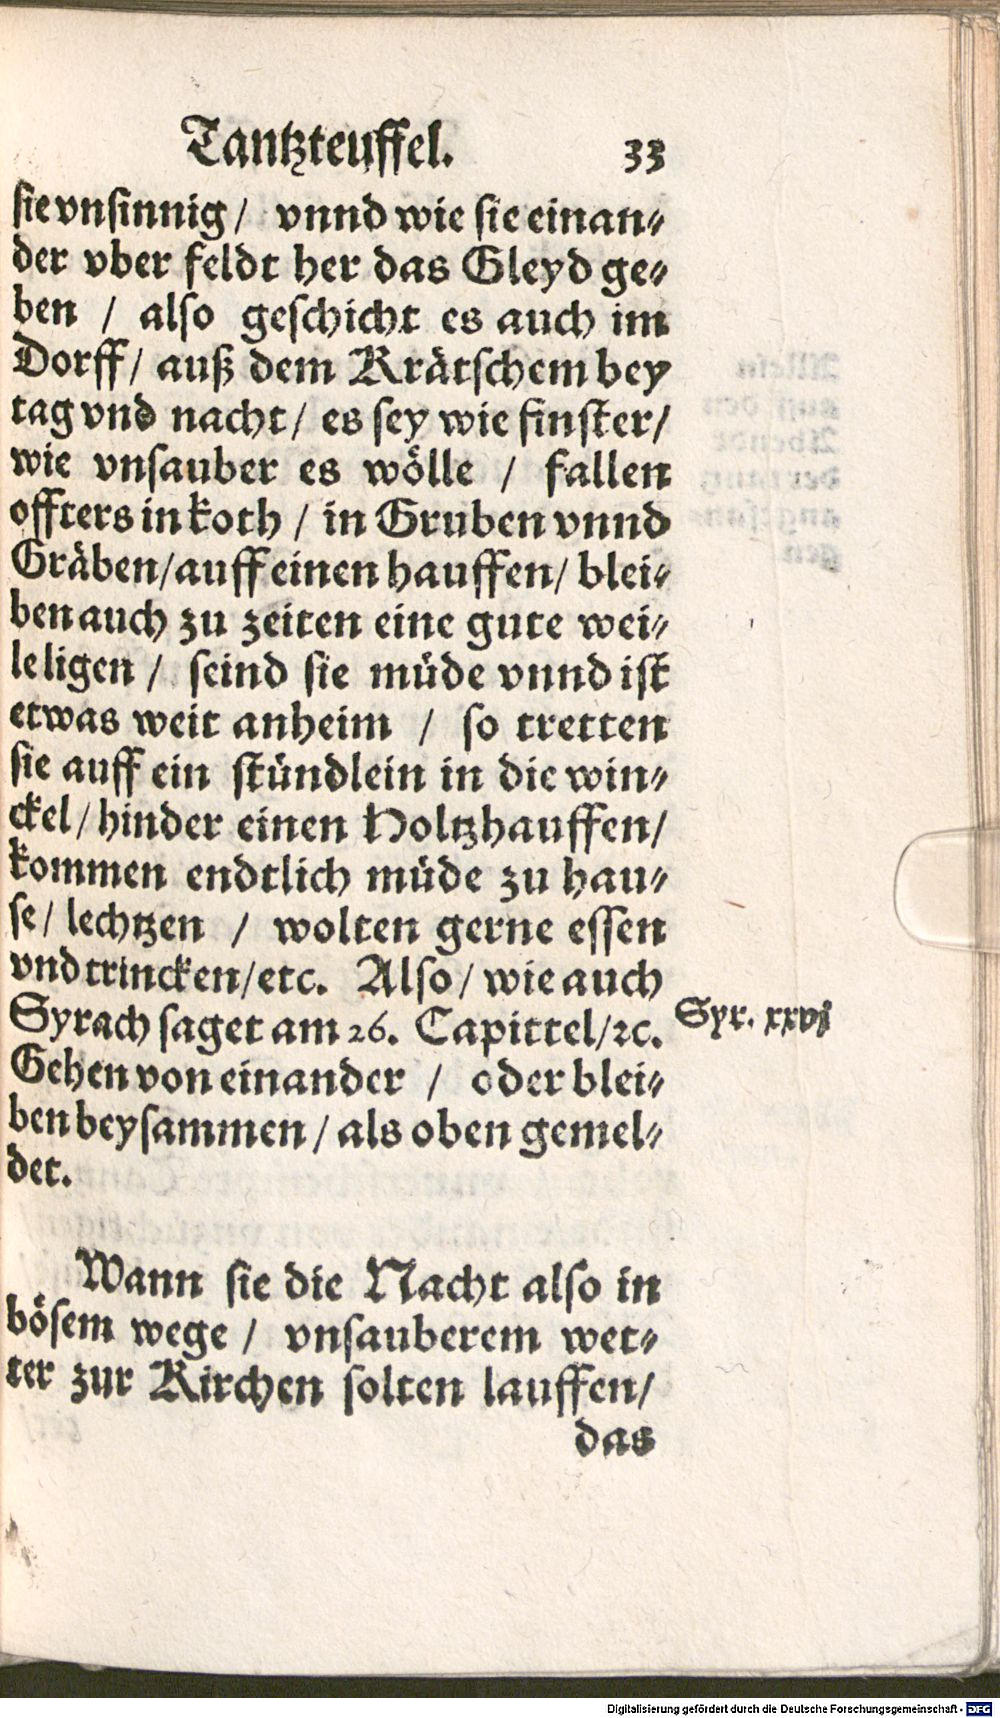 Tantzteuffel. 33
sie vnsinnig / vnnd wie sie einan⸗
der vber feldt her das Gleyd ge⸗
ben / also geschicht es auch im
Dorff / auß dem Krätschem bey
tag vnd nacht / es sey wie finster /
wie vnsauber es wölle / fallen
offters in koth / in Gruben vnnd
Gräben / auff einen hauffen / blei⸗
ben auch zu zeiten eine gute wei⸗
le ligen / seind sie müde vnnd ist
etwas weit anheim / so tretten
sie auff ein stündlein in die win⸗
ckel / hinder einen Holtzhauffen /
kommen endtlich müde zu hau⸗
se / lechtzen / wolten gerne essen
vnd trincken / etc. Also / wie auch
Syrach saget am 26. Capittel / ꝛc.
Syr. xxvj
Gehen von einander / oder blei⸗
ben beysammen / als oben gemel⸗
det.
Wann sie die Nacht also in
bösem wege / vnsauberem wet⸗
ter zur Kirchen solten lauffen /
das
Digitalisierung gefördert durch die Deutsche Forschungsgemeinschaft - DFG